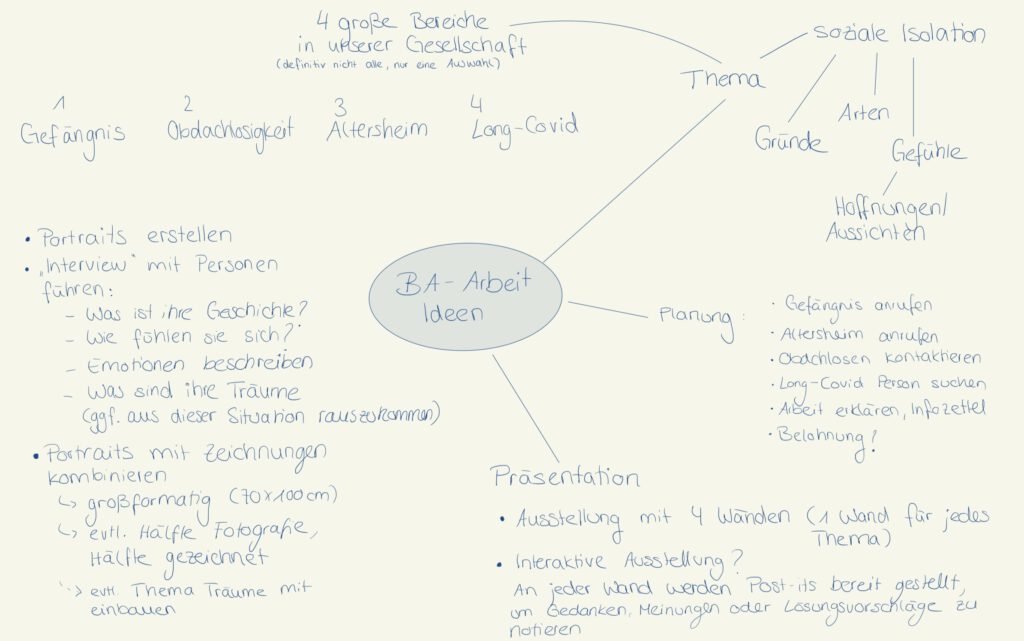 4 große Bereiche
in unserer Gesellschaft
(definitiv nicht alle, nur eine Auswahl)
1
Gefängnis
2
Obdachlosigkeit
3
Altersheim
4
Long-Covid
Thema
soziale Isolation
Gründe
Arten
Gefühle
Hoffnungen/
Aussichten
BA-Arbeit
Ideen
• Portraits erstellen
• „Interview" mit Personen
führen:
- Was ist ihre Geschichte?
- Wie fühlen sie sich?
- Emotionen beschreiben
- Was sind ihre Träume
(ggf. aus dieser Situation rauszukommen)
• Portraits mit Zeichnungen
kombinieren
↳ großformatig (70x100cm)
↳ evtl. Hälfte Fotografie,
Hälfte gezeichnet
↳ evtl. Thema Träume mit
einbauen
Planung:
• Gefängnis anrufen
• Altersheim anrufen
• Obdachlosen kontaktieren
• Long-Covid Person suchen
• Arbeit erklären, Infozettel
• Belohnung?
Präsentation
• Ausstellung mit 4 Wänden (1 Wand für jedes
Thema)
• Interaktive Ausstellung?
An jeder Wand werden Post-its bereit gestellt,
um Gedanken, Meinungen oder Lösungsvorschläge zu
notieren